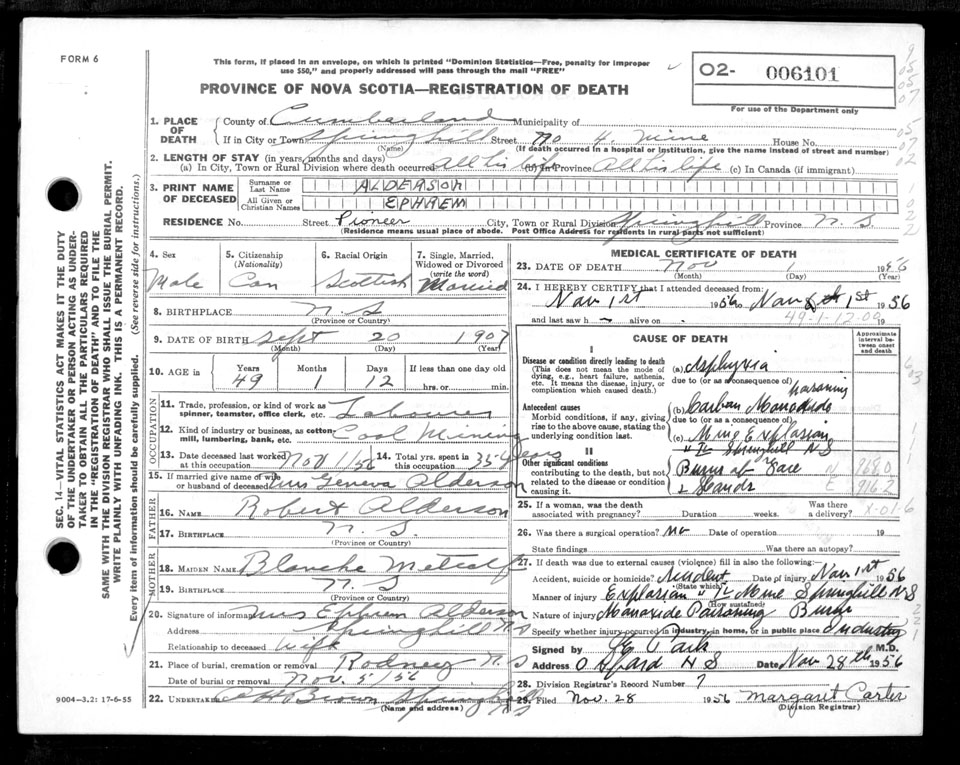 FORM 6
This form, if placed in an envelope, on which is printed "Dominion Statistics—Free, penalty for improper
use $50," and properly addressed will pass through the mail "FREE"
O2- 006101
For use of the Department only
PROVINCE OF NOVA SCOTIA—REGISTRATION OF DEATH
1. PLACE OF DEATH
County of Cumberland Municipality of
If in City or Town Springhill Street No 4 Mine House No.
(Name) (If death occurred in a hospital or institution, give the name instead of street and number)
2. LENGTH OF STAY (in years, months and days)
(a) In City, Town or Rural Division where death occurred all his life (b) In Province All his life (c) In Canada (if immigrant)
3. PRINT NAME OF DECEASED
Surname or Last Name ALDERSON
All Given or Christian Names EPHREM
RESIDENCE No. Street Pioneer City, Town or Rural Division Springhill Province N. S.
(Residence means usual place of abode. Post Office Address for residents in rural parts not sufficient)
4. Sex
Male
5. Citizenship
(Nationality)
Can
6. Racial Origin
Scottish
7. Single, Married,
Widowed or Divorced
(write the word)
Married
8. BIRTHPLACE N. S
(Province or Country)
9. DATE OF BIRTH Sept 20 1907
(Month) (Day) (Year)
10. AGE Years Months Days If less than one day old
49 1 12 hrs. or min.
OCCUPATION
11. Trade, profession, or kind of work as
spinner, teamster, office clerk, etc. Labourer
12. Kind of industry or business, as cotton-
mill, lumbering, bank, etc. Coal Mining
13. Date deceased last worked
at this occupation Nov 1/56
14. Total yrs. spent in
this occupation 35 years
15. If married give name of wife
or husband of deceased Mrs Geneva Alderson
FATHER
16. Name Robert Alderson
17. Birthplace N. S.
(Province or Country)
MOTHER
18. Maiden Name Blanche Metcalf
19. Birthplace N. S
(Province or Country)
20. Signature of informant Mrs Ephrem Alderson
Address Springhill N S
Relationship to deceased wife
21. Place of burial, cremation or removal Rodney N. S
Date of burial or removal Nov. 5/56
22. Undertaker Brown Springhill NS
(Name and address)
9004—3.2: 17-6-55
MEDICAL CERTIFICATE OF DEATH
23. DATE OF DEATH Nov 1 1956
(Month) (Day) (Year)
24. I HEREBY CERTIFY that I attended deceased from:
Nov 1st 1956 to Nov 1st 1956
and last saw h alive on 19
49-1-12.00
CAUSE OF DEATH
Approximate interval between onset and death
I
Disease or condition directly leading to death
(This does not mean the mode of
dying, e.g., heart failure, asthenia,
etc. It means the disease, injury, or
complication which caused death.)
(a) Asphyxia
due to (or as a consequence of)
Antecedent causes
Morbid conditions, if any, giving
rise to the above cause, stating the
underlying condition last.
(b) Carbon Monoxide Poisoning
due to (or as a consequence of)
(c) Mine Explosion
Springhill N S
II
Other significant conditions
contributing to the death, but not
related to the disease or condition
causing it.
Burns of Face
& Hands
N 968.0
E 916.2
25. If a woman, was the death
associated with pregnancy? Duration weeks. Was there a delivery?
X-01-6
26. Was there a surgical operation? No Date of operation 19
State findings Was there an autopsy?
27. If death was due to external causes (violence) fill in also the following:
Accident, suicide or homicide? Accident Date of injury Nov 1st 1956
(State which)
Manner of injury Explosion Mine Springhill NS
(How sustained)
Nature of injury Monoxide Poisoning Burns
Specify whether injury occurred in industry, in home, or in public place Industry
Signed by M.D.
Address Oxford N S Date Nov 28th 1956
28. Division Registrar's Record Number 7
29. Filed Nov. 28 1956 Margaret Carter
(Division Registrar)
SEC. 14—VITAL STATISTICS ACT MAKES IT THE DUTY
OF THE UNDERTAKER OR PERSON ACTING AS UNDER-
TAKER TO OBTAIN ALL THE PARTICULARS REQUIRED
IN THE "REGISTRATION OF DEATH" AND TO FILE THE
SAME WITH THE DIVISION REGISTRAR WHO SHALL ISSUE THE BURIAL PERMIT.
WRITE PLAINLY WITH UNFADING INK. THIS IS A PERMANENT RECORD.
Every item of information should be carefully supplied. (See reverse side for instructions.)